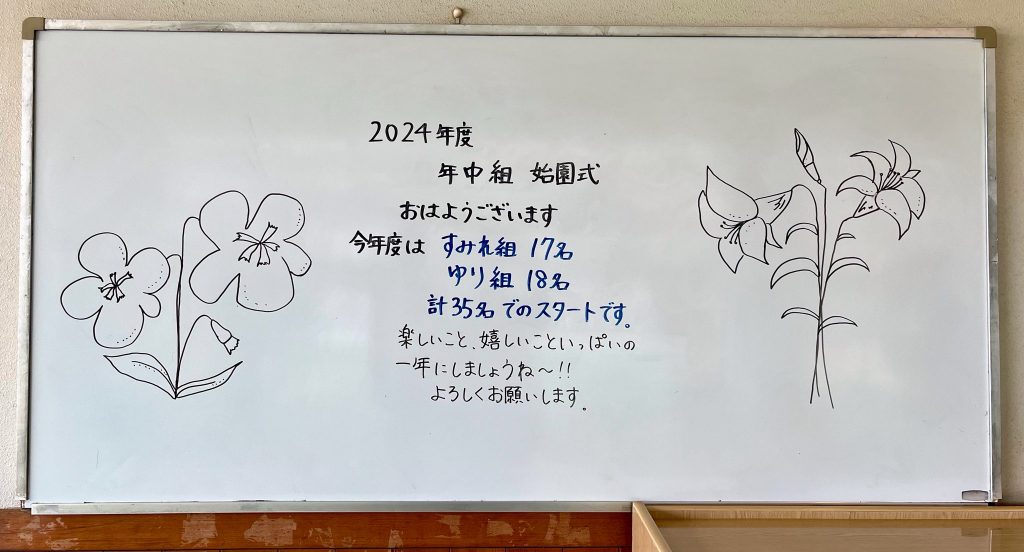 2024年度
年中組 始園式
おはようございます
今年度は すみれ組 17名
ゆり組 18名
計35名でのスタートです。
楽しいこと、嬉しいこといっぱいの
一年にしましょうね～!!
よろしくお願いします。